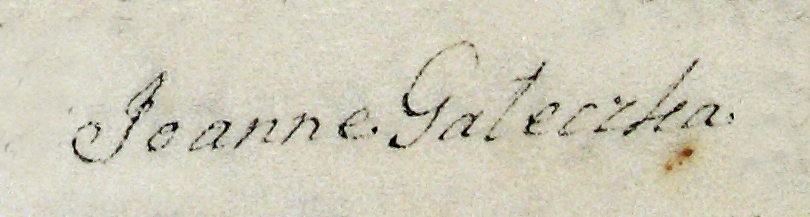 Joanne Gateczka.